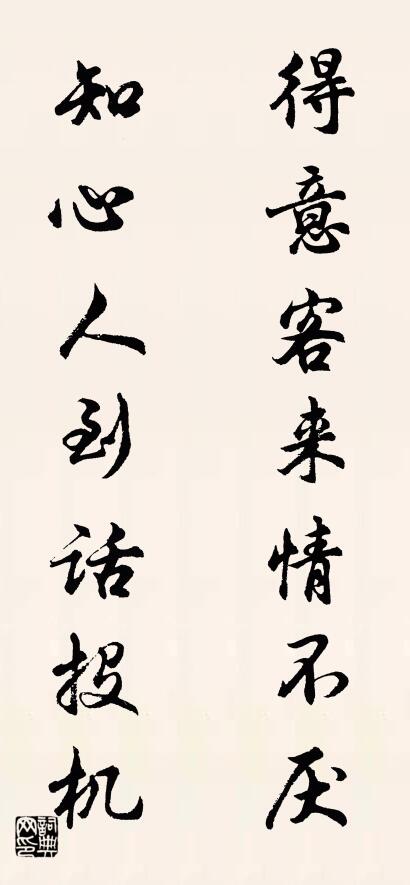 得意客来情不厌
知心人到话投机
詞典网印